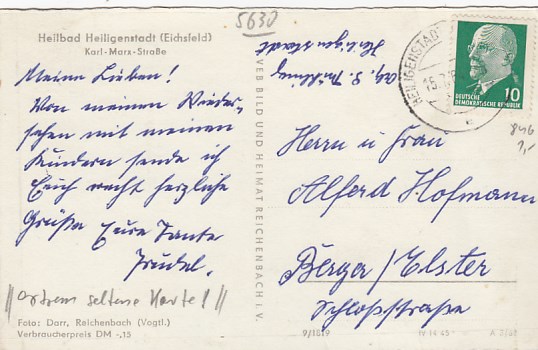 5630
Heilbad Heiligenstadt (Eichsfeld)
Karl-Marx-Straße
Meine Lieben!
Von meinem Wieder-
sehen mit meinen
Kindern sende ich
Euch recht herzliche
Grüße Eure Tante
Trudel.
//extrem seltene Karte!//
Foto: Darr, Reichenbach (Vogtl.)
Verbraucherpreis DM -,15
VEB BILD UND HEIMAT REICHENBACH I. V.
Heiligenstadt
HEILIGENSTADT
10
DEUTSCHE
DEMOKRATISCHE REPUBLIK
846
1,-
Herrn u Frau
Alferd Hofmann
Berga/Elster
Schloßstraße
9/1819
IV 14 45